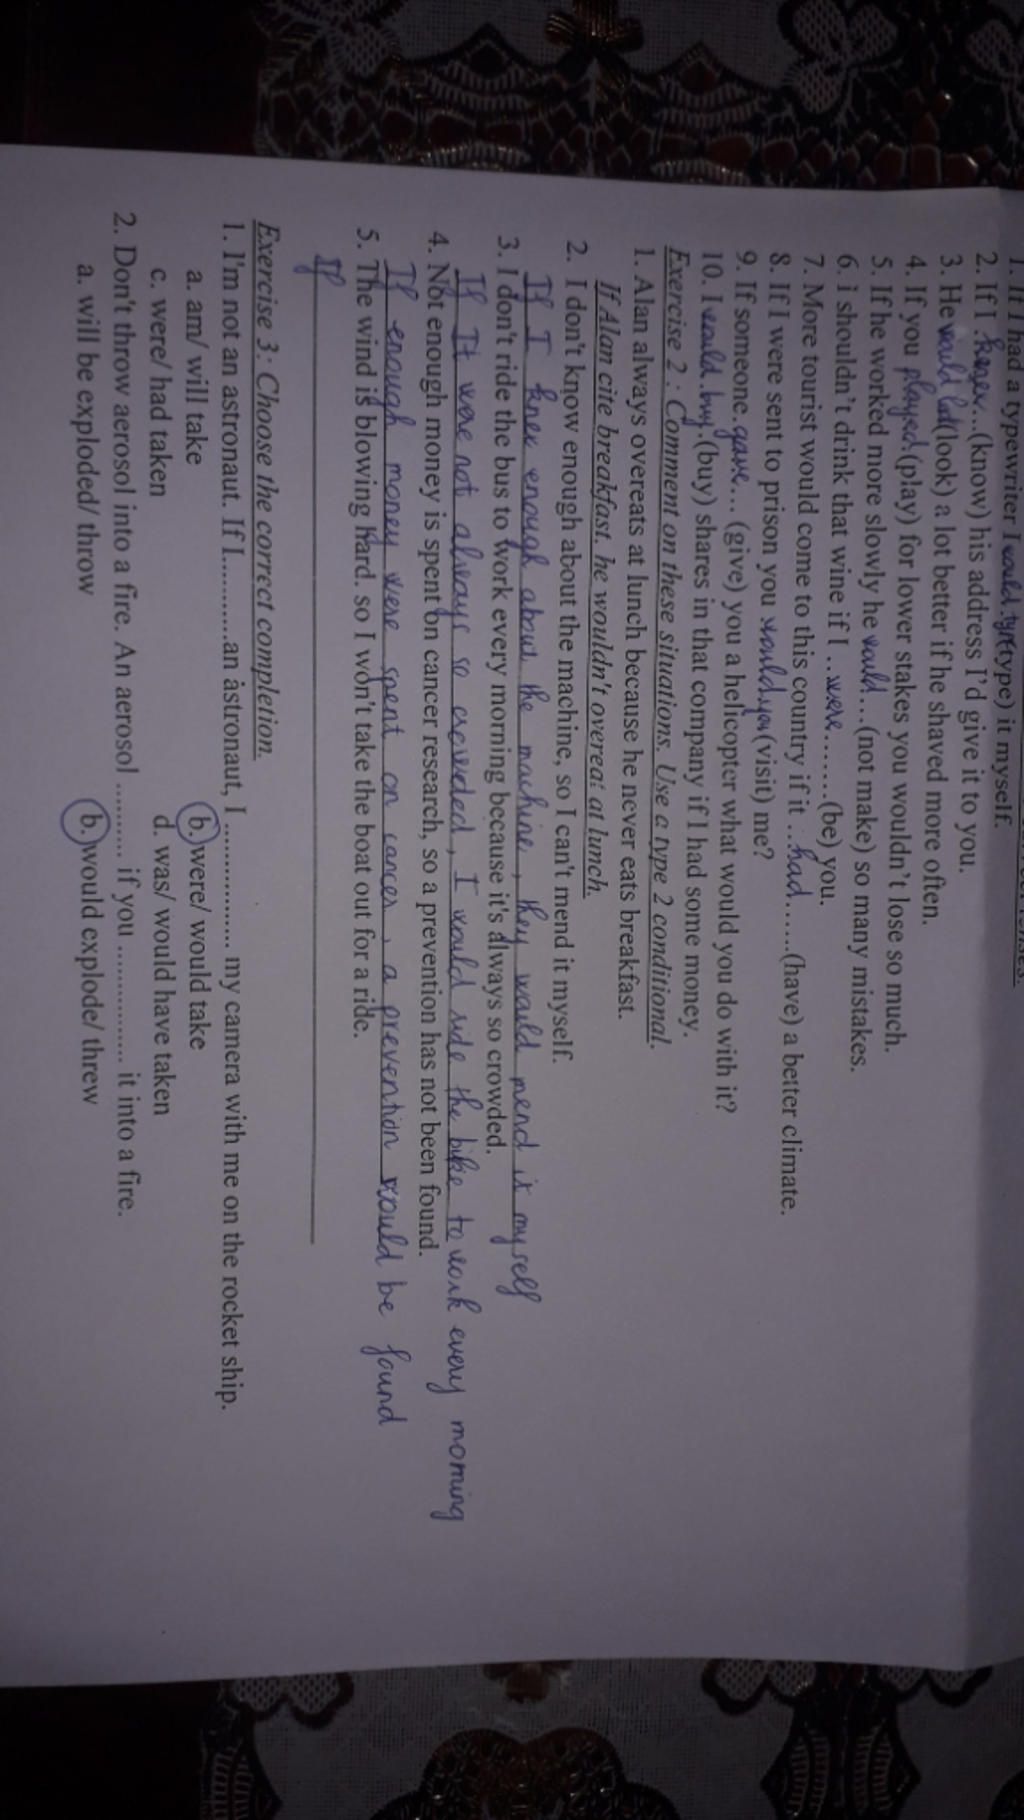 1. If I had a typewriter I would type (type) it myself.
2. If I knew...(know) his address I'd give it to you.
3. He would look (look) a lot better if he shaved more often.
4. If you played.(play) for lower stakes you wouldn't lose so much.
5. If he worked more slowly he would...(not make) so many mistakes.
6. I shouldn't drink that wine if I ..were.......(be) you.
7. More tourist would come to this country if it ...had......(have) a better climate.
8. If I were sent to prison you would.you (visit) me?
9. If someone.gave... (give) you a helicopter what would you do with it?
10. I would.buy.(buy) shares in that company if I had some money.
Exercise 2 : Comment on these situations. Use a type 2 conditional.
1. Alan always overeats at lunch because he never eats breakfast.
If Alan cite breakfast, he wouldn't overeat at lunch.
2. I don't know enough about the machine, so I can't mend it myself.
If I knew enough about the machine, they would mend it myself
3. I don't ride the bus to work every morning because it's always so crowded.
If It were not always so crowded, I would ride the bike to work every morning
4. Not enough money is spent on cancer research, so a prevention has not been found.
If enough money were spent on cancer, a prevention would be found
5. The wind is blowing hard. so I won't take the boat out for a ride.
If
Exercise 3: Choose the correct completion.
1. I'm not an astronaut. If I..........an astronaut, I .............. my camera with me on the rocket ship.
a. am/ will take b. were/ would take
c. were/ had taken d. was/ would have taken
2. Don't throw aerosol into a fire. An aerosol .......... if you ................ it into a fire.
a. will be exploded/ throw b. would explode/ threw